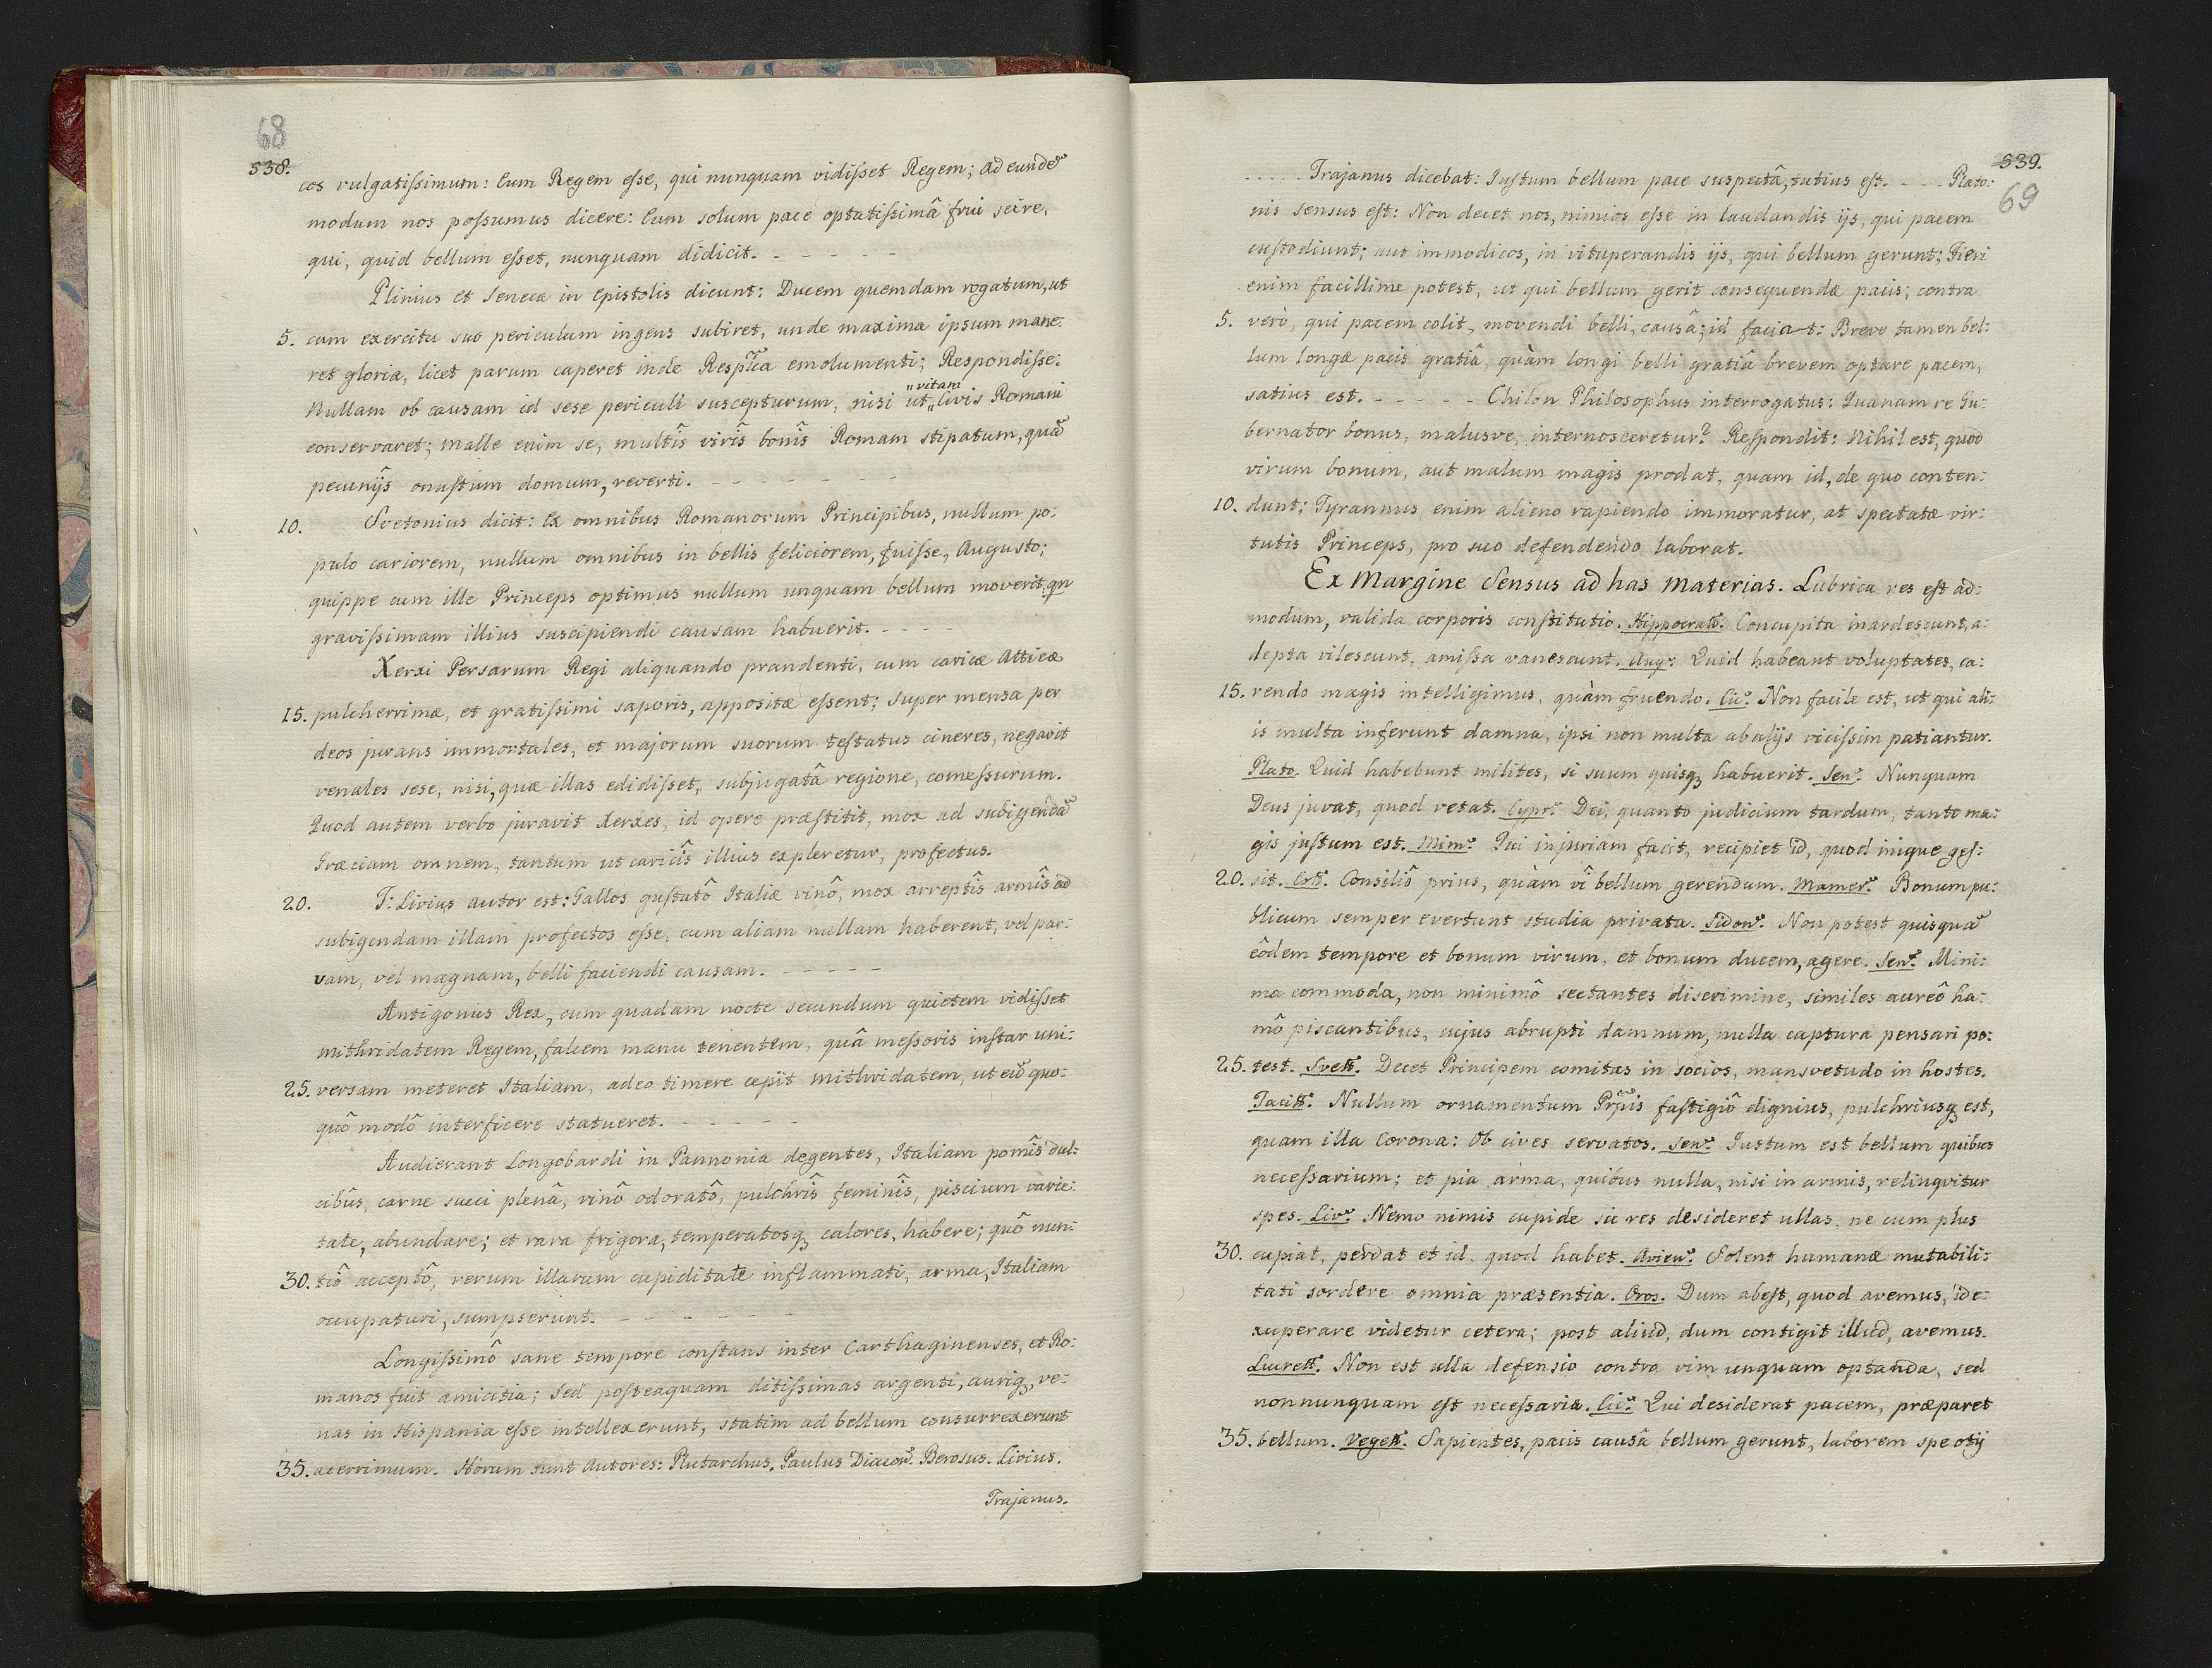 68
538.
cos vulgatißimum: Eum Regem eße, qui nunquam vidißet Regem; ad eundẽ
modum nos poßumus dicere: Eum solum pace optatißimâ frui scire,
qui, quid bellum eßet, nunquam didicit. - - - - -
Plinius et Seneca in Epistolis dicunt: Ducem quemdam rogatum, ut
5. cum exercitu suo periculum ingens subiret, unde maxima ipsum mane:
ret gloria, licet parum caperet inde Resp̃lca emolumenti; Respondiße:
"vitam
Nullam ob causam id sese periculi suscepturum, nisi ut„ Civis Romani
conservaret; malle enim se, multîs virîs bonîs Romam stipatum, quã
pecunijs onustum domum, reverti. - - - - - - -
10. Svetonius dicit: Ex omnibus Romanorum Principibus, nullum po:
pulo cariorem, nullum omnibus in bellis feliciorem, fuiße, Augusto;
quippe cum ille Princeps optimus nullum unquam bellum moverit, qn
gravißimam illius suscipiendi causam habuerit. - - -
Xerxi Persarum Regi aliquando prandenti, cum caricæ Atticæ
15. pulcherrimæ, et gratißimi saporis, appositæ eßent; super mensa per
deos jurans immortales, et majorum suorum testatus cineres, negavit
venales sese, nisi, quæ illas edidißet, subjugatâ regione, comeßurum.
Quod autem verbo juravit Xerxes, id opere præstitit, mox ad subigendã
Græciam omnem, tantum ut caricîs illius expleretur, profectus.
20. T: Livius autor est: Gallos gustatô Italiæ vinô, mox arreptîs armîs ad
subigendam illam profectos eße, cum aliam nullam haberent, vel par:
vam, vel magnam, belli faciendi causam. - - - - -
Antigonus Rex, cum quadam nocte secundum quietem vidißet
Mithridatem Regem, falcem manu tenentem, quâ meßoris instar uni:
25. versam meteret Italiam, adeo timere cœpit Mithridatem, ut eũ quo:
quô modô interficere statueret. - - - - -
Audierant Longobardi in Pannonia degentes, Italiam pomîs dul:
cibûs, carne succi plenâ, vinô odoratô, pulchrîs feminîs, piscium varie:
tate, abundare; et rara frigora, temperatosq; calores, habere; quô nun:
30. tiô acceptô, rerum illarum cupiditate inflammati, arma, Italiam
occupaturi, sumpserunt. - - - - -
Longißimô sane tempore constans inter Carthaginenses, et Ro:
manos fuit amicitia; Sed posteaquam ditißimas argenti, auriq; ve:
nas in Hispania eße intellexerunt, statim ad bellum consurrexerunt
35. acerrimum. Horum sunt Autores: Plutarchus. Paulus Diacon9. Berosus. Livius.
Trajanus.
539.
69
- - - - - Trajanus dicebat: Justum bellum pace suspectâ, tutius est. - - - Plato:
nis Sensus est: Non decet nos, nimios eße in laudandis ijs, qui pacem
custodiunt; aut immodicos, in vituperandis ijs, qui bellum gerunt; Fieri
enim facillime potest, ut qui bellum gerit consequendæ pacis; contra
5. verò, qui pacem colit, movendi belli, causâ; id faciat: Breve tamen bel:
lum longæ pacis gratiâ, quàm longi belli gratiâ brevem optare pacem,
satius est. - - - - - Chilon Philosophus interrogatus: Quanam re Gu:
bernator bonus, malusve, internosceretur? Respondit: Nihil est, quod
virum bonum, aut malum magis prodat, quam id, de quo conten:
10. dunt; Tyrannus enim alieno rapiendo immoratur, at spectatæ vir:
tutis Princeps, pro suo defendendo laborat.
Ex Margine Sensus ad has Materias. Lubrica res est ad:
modum, valida corporis constitutio. Hippocrat9. Concupita inardescunt, a:
depta vilescunt, amißa vanescunt. Aug: Quid habeant voluptates, ca:
15. rendo magis intelligimus, quàm fruendo. Cic9. Non facile est, ut qui ali:
is multa inferunt damna, ipsi non multa ab alijs vicißim patiantur.
Plato. Quid habebunt milites, si suum quisq; habuerit. Sen9. Nunquam
Deus juvat, quod vetat. Cypr9. Dei, quanto judicium tardum, tanto ma:
gis justum est. Mim9. Qui injuriam facit, recipiet id, quod inique ges:
20. sit. Consiliô prius, quàm vî bellum gerendum. Mamer9. Bonum pu:
blicum semper evertunt studia privata. Sidon9. Non potest quisquã
eôdem tempore et bonum virum, et bonum ducem, agere. Sen9. Mini:
ma commoda, non minimô sectantes discrimine, similes aureô ha:
mô piscantibus, cujus abrupti damnum, nulla captura pensari po:
25. test. Svet9. Decet Principem comitas in socios, mansvetudo in hostes.
Tacit9. Nullum ornamentum Prp̃is fastigiô dignius, pulchriusq; est,
quam illa Corona: Ob cives servatos. Sen9. Iustum est bellum quibus
necessarium; et pia arma, quibus nulla, nisi in armis, relinqvitur
spes. Liv9. Nemo nimis cupide sic res desideret ullas, ne cum plus
30. cupiat, perdat et id, quod habet. Avien9. Solent humanæ mutabili:
tati sordere omnia præsentia. Oros. Dum abest, quod avemus, id e:
xuperare videtur cetera; post aliud, dum contigit illud, avemus.
Lucret9. Non est ulla defensio contra vim unquam optanda, sed
nonnunquam est neceßaria. Cic9. Qui desiderat pacem, præparet
35. bellum. Veget9. Sapientes, pacis causâ bellum gerunt, laborem spe otij